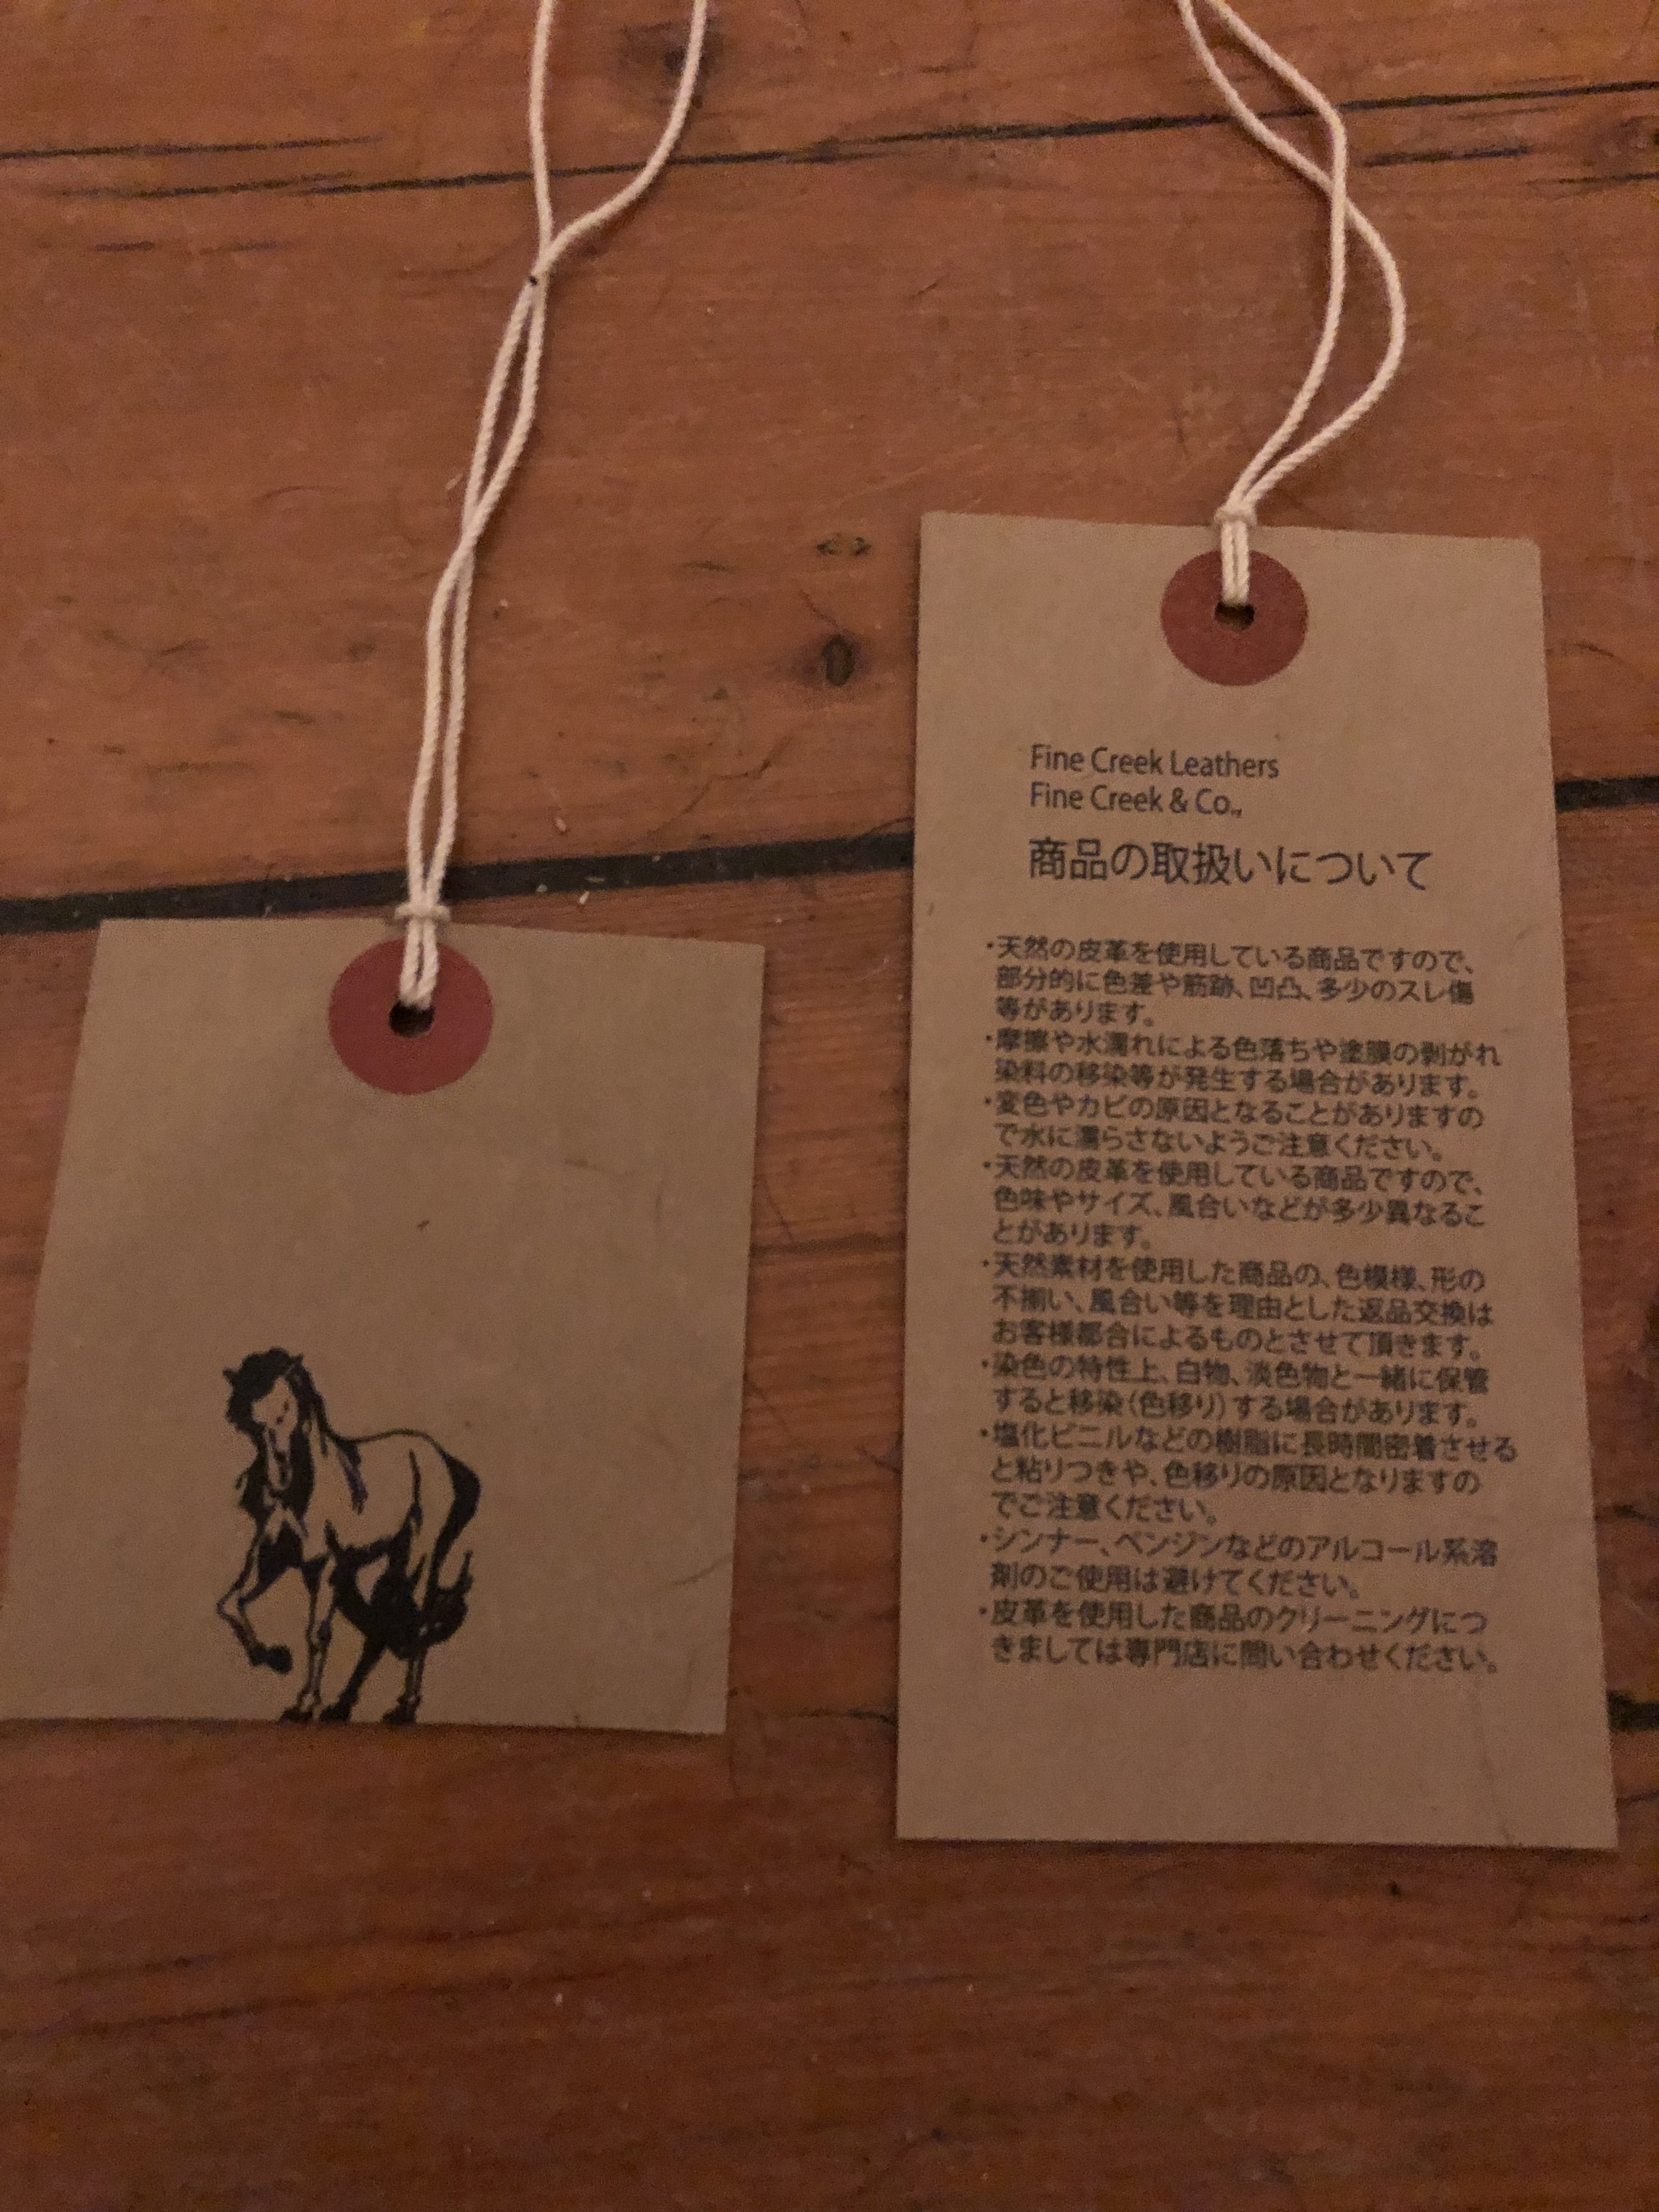 Fine Creek Leathers
Fine Creek & Co.,
商品の取扱いについて
・天然の皮革を使用している商品ですので、
部分的に色差や筋跡、凹凸、多少のスレ傷
等があります。
・摩擦や水濡れによる色落ちや塗膜の剥がれ
染料の移染等が発生する場合があります。
・変色やカビの原因となることがありますの
で水に濡らさないようご注意ください。
・天然の皮革を使用している商品ですので、
色味やサイズ、風合いなどが多少異なるこ
とがあります。
・天然素材を使用した商品の、色模様、形の
不揃い、風合い等を理由とした返品交換は
お客様都合によるものとさせて頂きます。
・染色の特性上、白物、淡色物と一緒に保管
すると移染(色移り)する場合があります。
・塩化ビニルなどの樹脂に長時間密着させる
と粘りつきや、色移りの原因となりますの
でご注意ください。
・シンナー、ベンジンなどのアルコール系溶
剤のご使用は避けてください。
・皮革を使用した商品のクリーニングにつ
きましては専門店に問い合わせください。